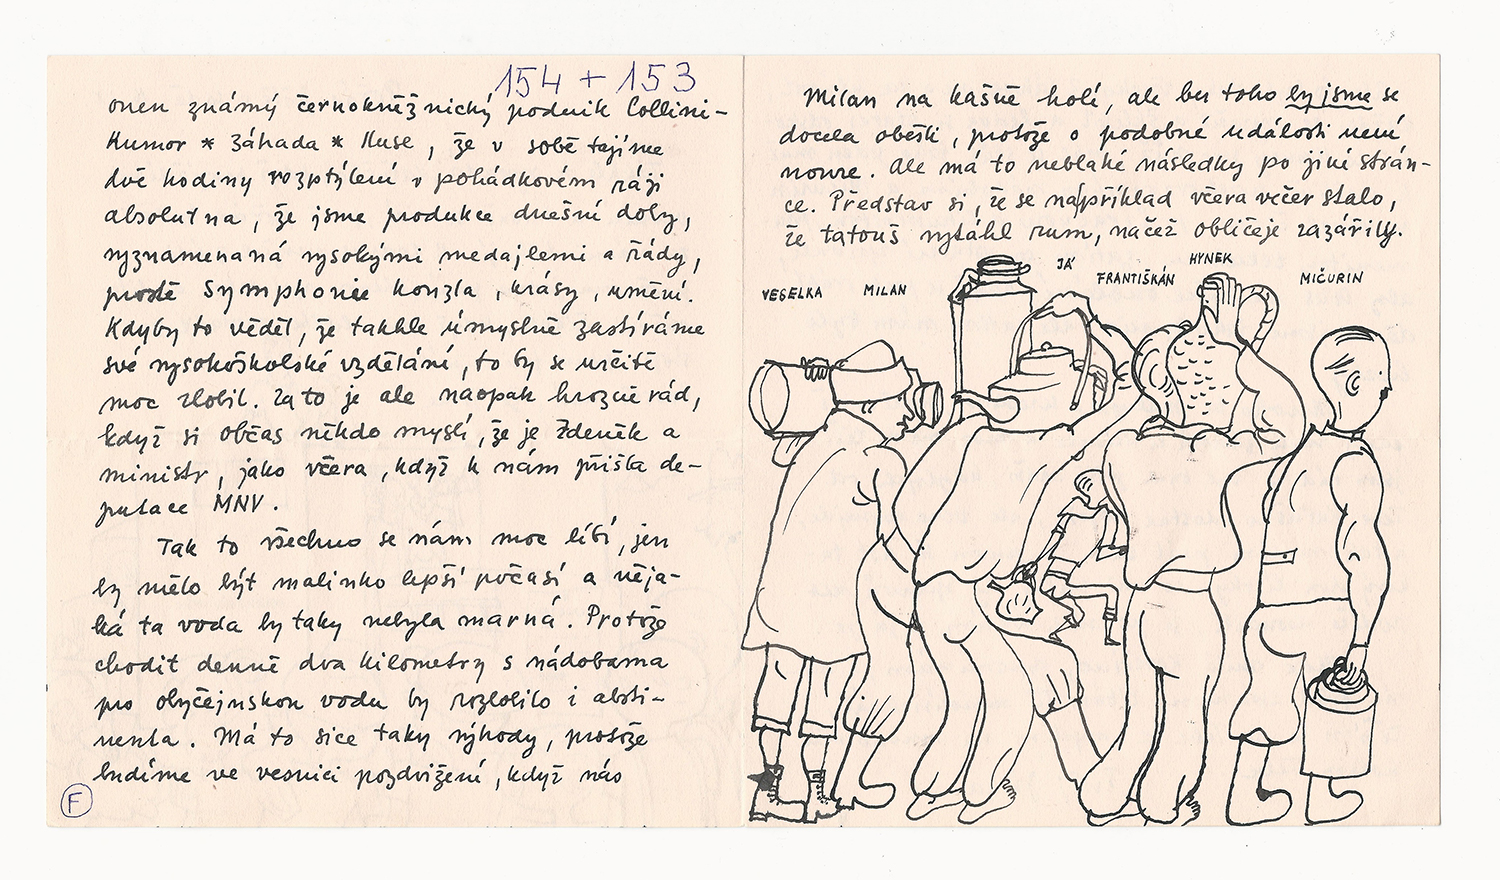 154 + 153
onen známý černokněžnický podnik Collini-
Humor * Záhada * Iluse, že v sobě tajíme
dvě hodiny rozptýlení v pohádkovém ráji
absolutna, že jsme produkce dnešní doby,
vyznamenaná vysokými medajlemi a řády,
prostě Symphonie kouzla, krásy, umění.
Kdyby to věděl, že takhle úmyslně zastíráme
své vysokoškolské vzdělání, to by se určitě
moc zlobil. Zato je ale naopak hrozně rád,
když si občas někdo myslí, že je Zdeněk a
ministr, jako včera, když k nám přišla de-
putace MNV.
Tak to všechno se nám moc líbí, jen
by mělo být malinko lepší počasí a něja-
ká ta voda by taky nebyla marná. Protože
chodit denně dva kilometry s nádobama
pro obyčejnskou vodu by rozlobilo i absti-
nenta. Má to sice taky výhody, protože
budíme ve vesnici pozdvižení, když nás
F
Milan na kašně holí, ale bez toho by jsme se
docela obešli, protože o podobné události není
nouze. Ale má to neblahé následky po jiné strán-
ce. Představ si, že se například včera večer stalo,
že tatouš vytáhl rum, načež obličeje zazářily.
VEGELKA
MILAN
JÁ
FRANTIŠKÁN
HYNEK
MIČURIN